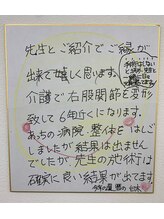 先生とご紹介でご縁が
出来て嬉しく思います。
介護で右股関節を変形
致して6年近くになります。
あちの病院、整体をはしご
しましたが結果は出ません
でしたが先生の施術は
確実に良い結果が出てます